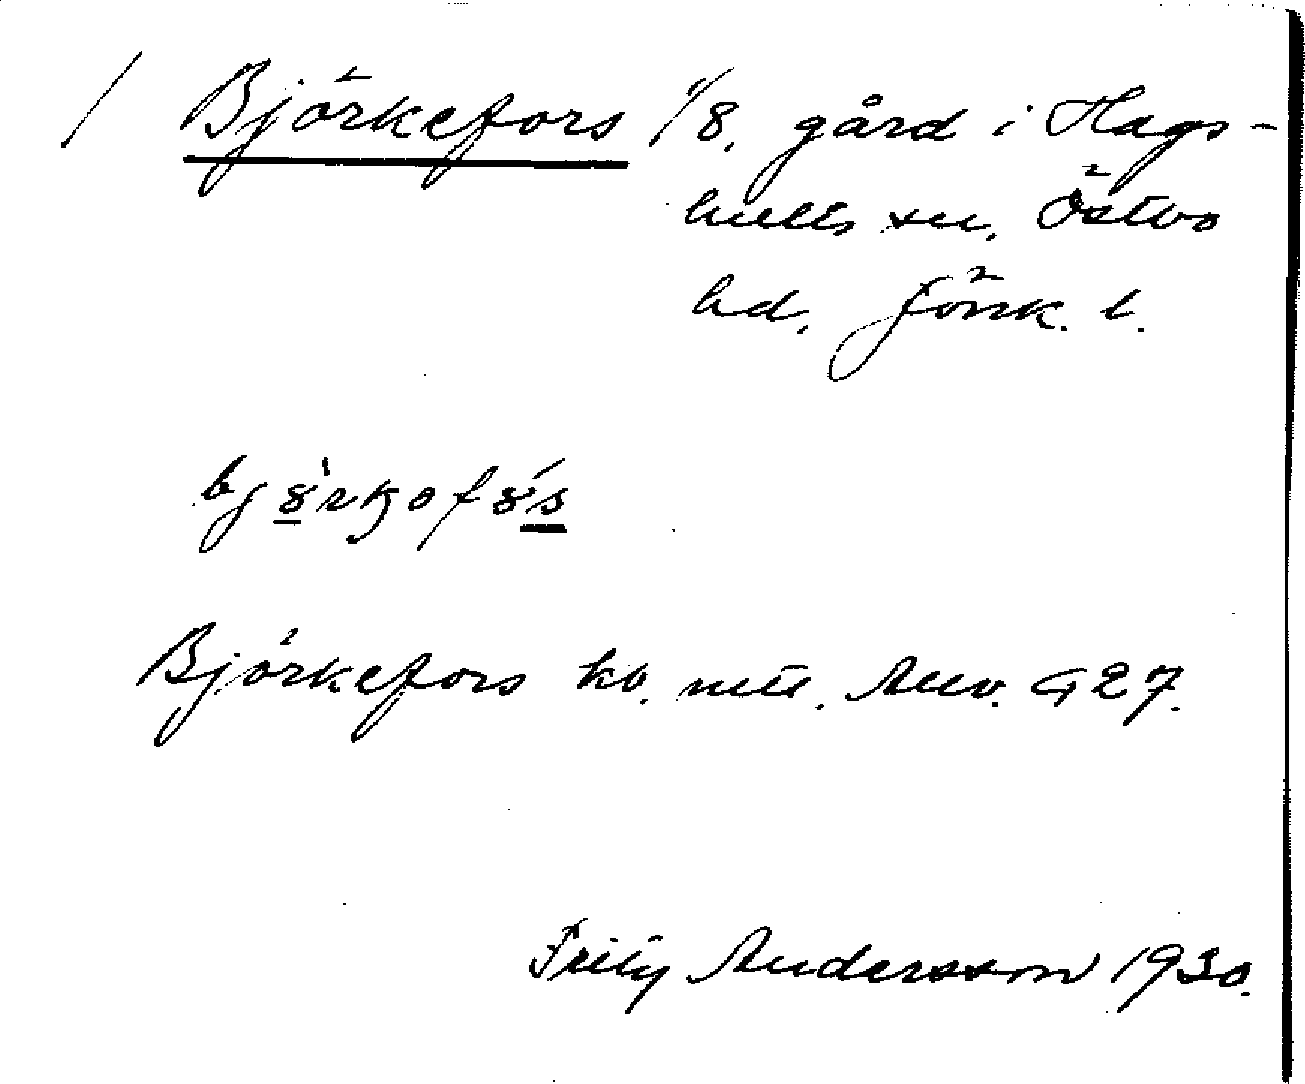 / Björkefors 1/8, gård i Hags-
hults sn, Östbo
hd, Jönk. l.
Björkefors kb. mtl.
Fritz Andersson 1930.